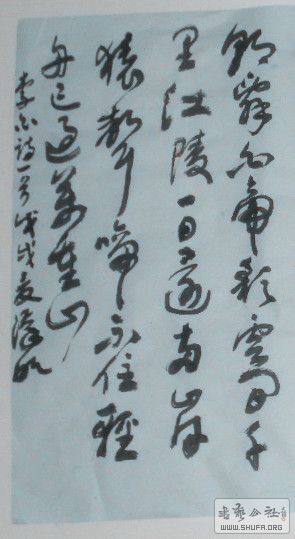 朝辭白帝彩雲間千
里江陵一日還两岸
猿聲啼不住輕
舟已過萬重山
李白詩一首戊戌夏
书艺公社
WWW.SHUFA.ORG